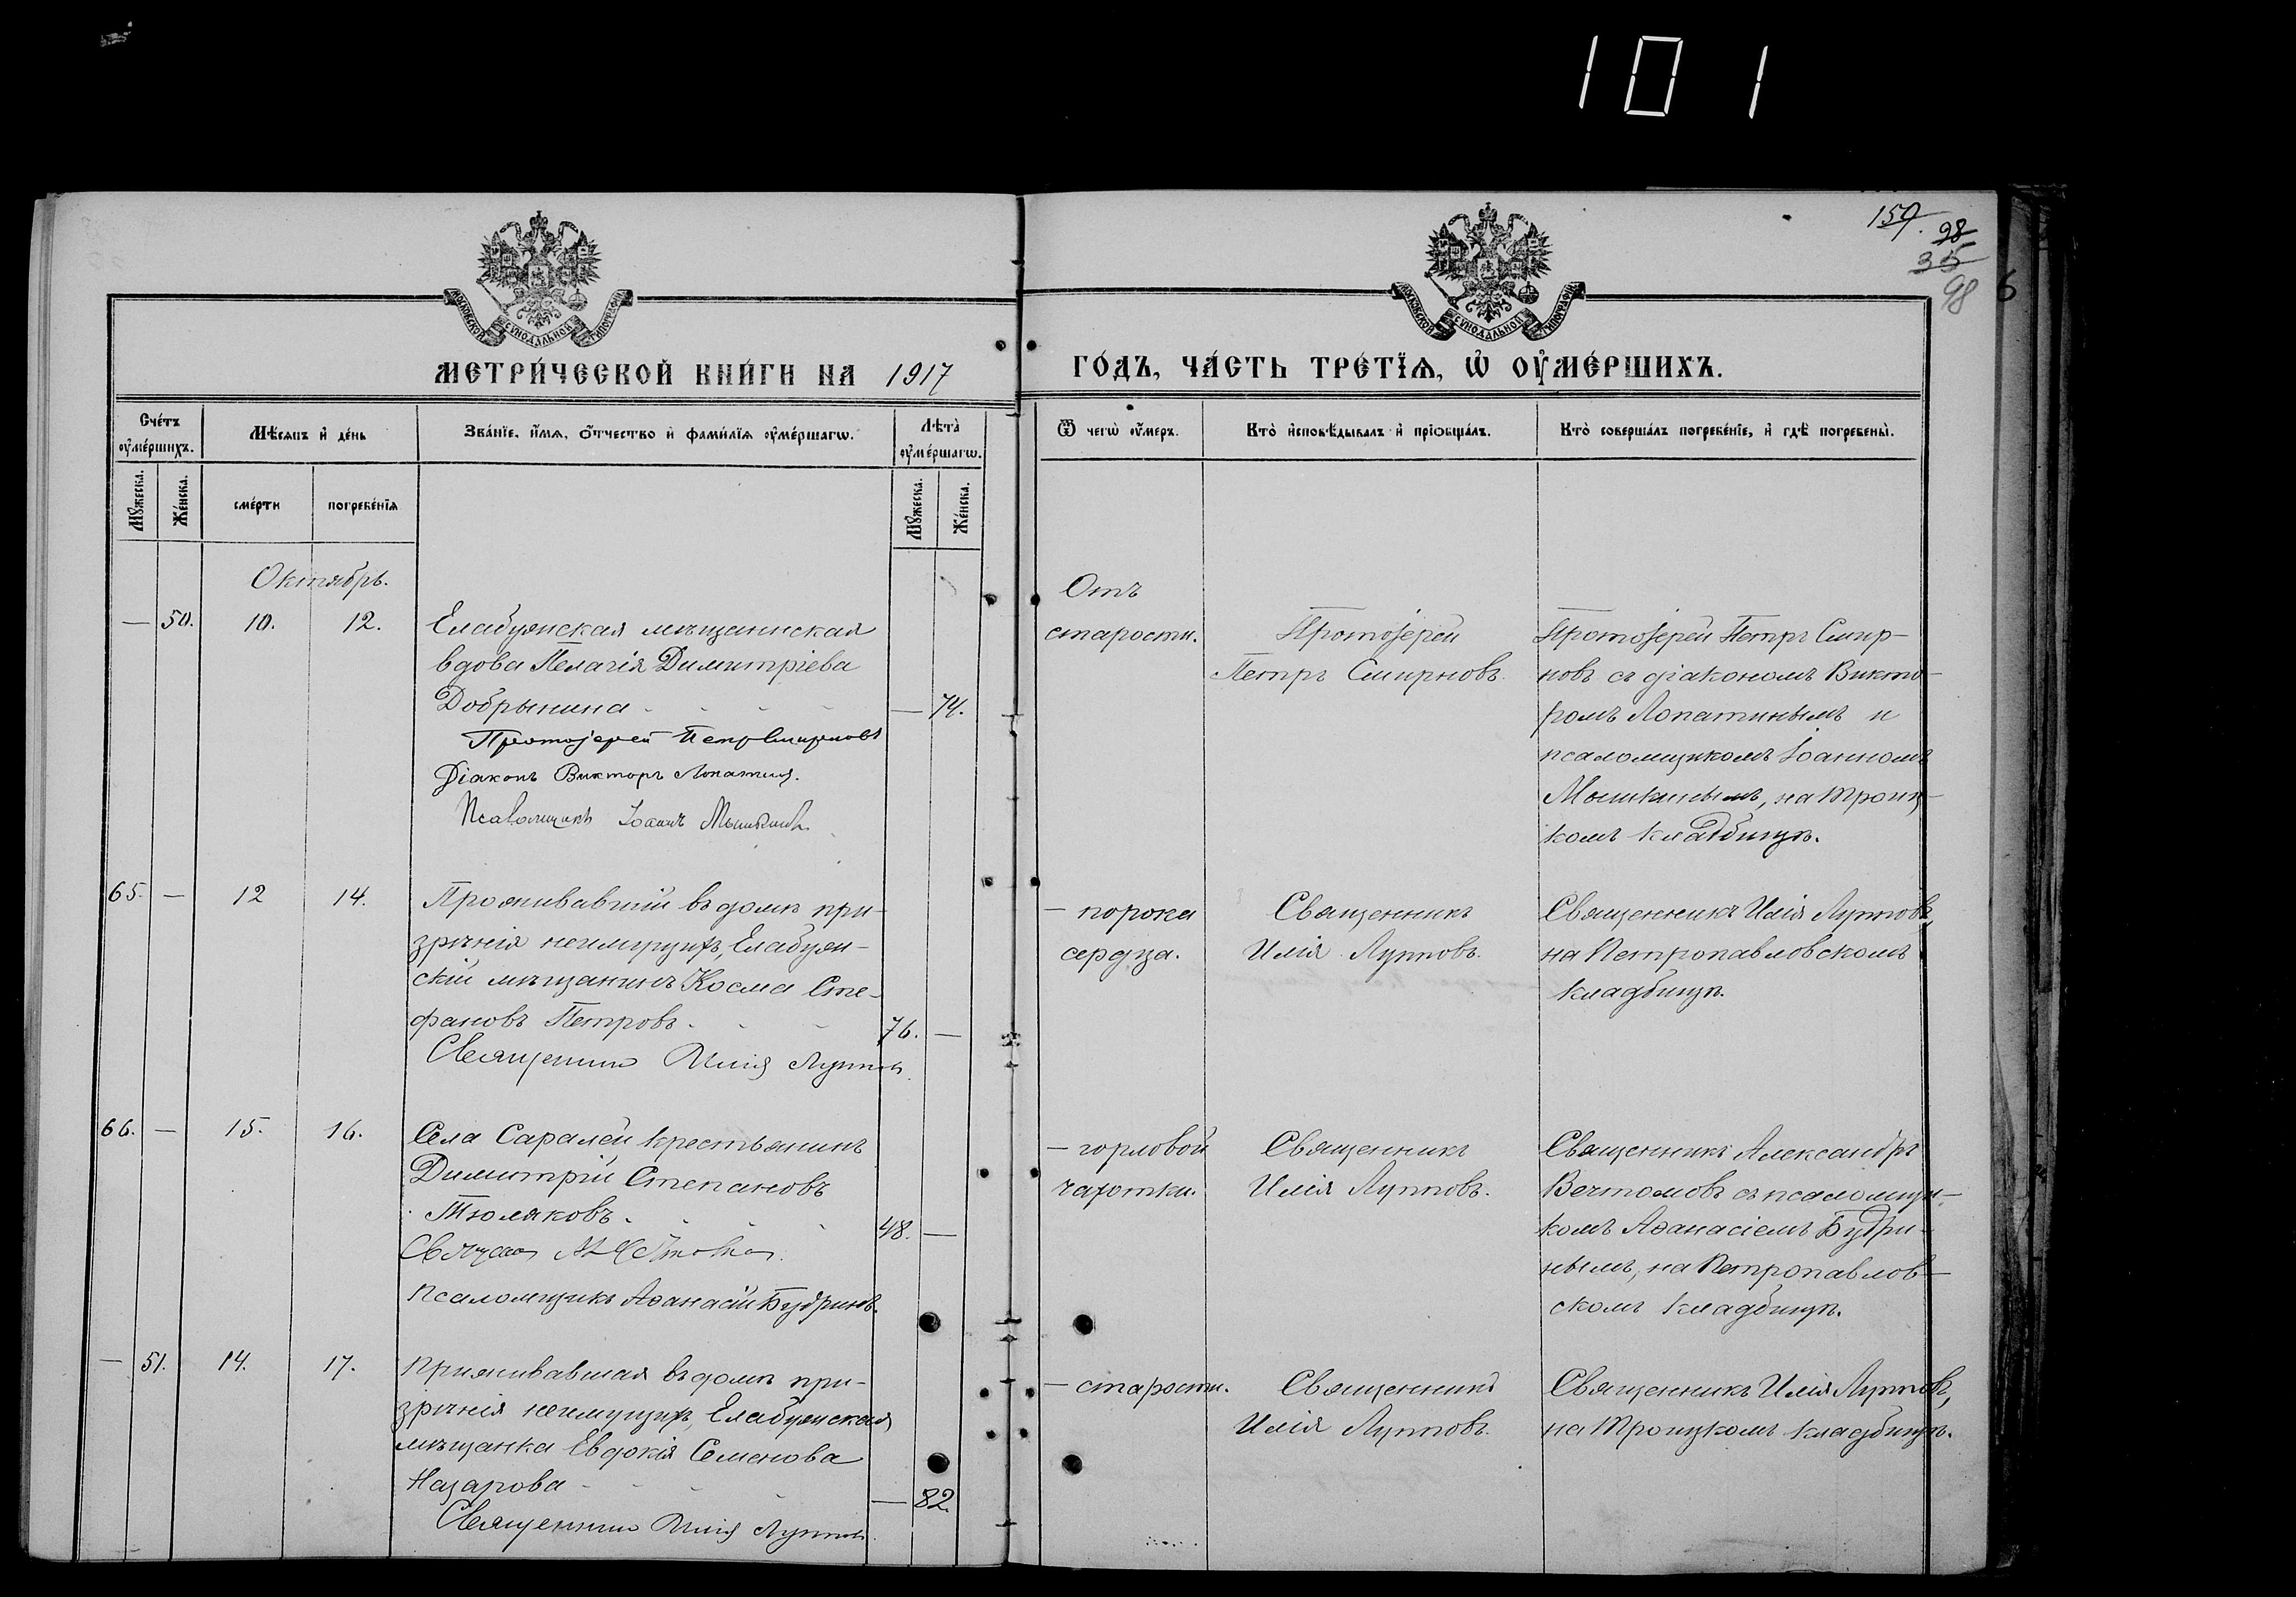 101
159.
98
35
98
6
МОСКОВСКОЙ СѴНОДАЛЬНОЙ ТИПОГРАФІИ
МОСКОВСКОЙ СѴНОДАЛЬНОЙ ТИПОГРАФІИ
МЕТРИ́ЧЕСКОЙ КНИ́ГИ НА 1917 ГО́ДЪ, ЧА́СТЬ ТРЕ́ТЇѦ, Ѡ҆ ОУ҆МЕ́РШИХЪ.
Сче́тъ оу҆ме́ршихъ.
Мѣ́сяцъ и҆ де́нь
Зва́нїе, и҆́мѧ, ѻ҆́тчество и҆ фами́лїѧ оу҆ме́ршагѡ.
Лѣ̑та̀ оу҆ме́ршагѡ.
Ѿ чегѡ̀ оу҆́меръ.
Кто̀ и҆сповѣ́дывалъ и҆ прїобща́лъ.
Кто̀ соверша́лъ погребе́нїе, и҆ гдѣ̀ погребены̀.
Мꙋ́жеска.
Же́нска.
сме́рти
погребе́нїѧ
Мꙋ́жеска.
Же́нска.
Октябрь.
— 50. 10. 12.
Елабужская мѣщанская
вдова Пелагія Димитріева
Добрынина - - - - — 74.
Протоіерей Петръ Смирновъ
Діаконъ Викторъ Лопатинъ.
Псаломщикъ Іоаннъ Мышкинъ
Отъ
старости.
Протоіерей
Петръ Смирновъ.
Протоіерей Петръ Смир-
новъ съ діакономъ Викто-
ромъ Лопатинымъ и
псаломщикомъ Іоанномъ
Мышкинымъ, на Троиц-
комъ кладбищѣ.
65. — 12 14.
Проживавшій въ домѣ при-
зрѣнія неимущихъ, Елабуж-
скій мѣщанинъ Косма Сте-
фановъ Петровъ - - - 76. —
Священникъ Илія Лупповъ.
— порока
сердца.
Священникъ
Илія Лупповъ.
Священникъ Илія Лупповъ,
на Петропавловскомъ
кладбищѣ.
66. — 15. 16.
Села Саралей, крестьянинъ
Димитрій Степановъ
Тюляковъ. - - - 48. —
Псаломщикъ Аѳанасій Будринъ.
— горловой
чахотки.
Священникъ
Илія Лупповъ.
Священникъ Александръ
Вечтомовъ съ псаломщи-
комъ Аѳанасіемъ Будри-
нымъ, на Петропавлов-
скомъ кладбищѣ.
— 51. 14. 17.
Проживавшая въ домѣ при-
зрѣнія неимущихъ, Елабужская
мѣщанка Евдокія Семенова
Назарова - - - - — 82.
Священникъ Илія Лупповъ.
— старости.
Священникъ
Илія Лупповъ.
Священникъ Илія Лупповъ,
на Троицкомъ кладбищѣ.